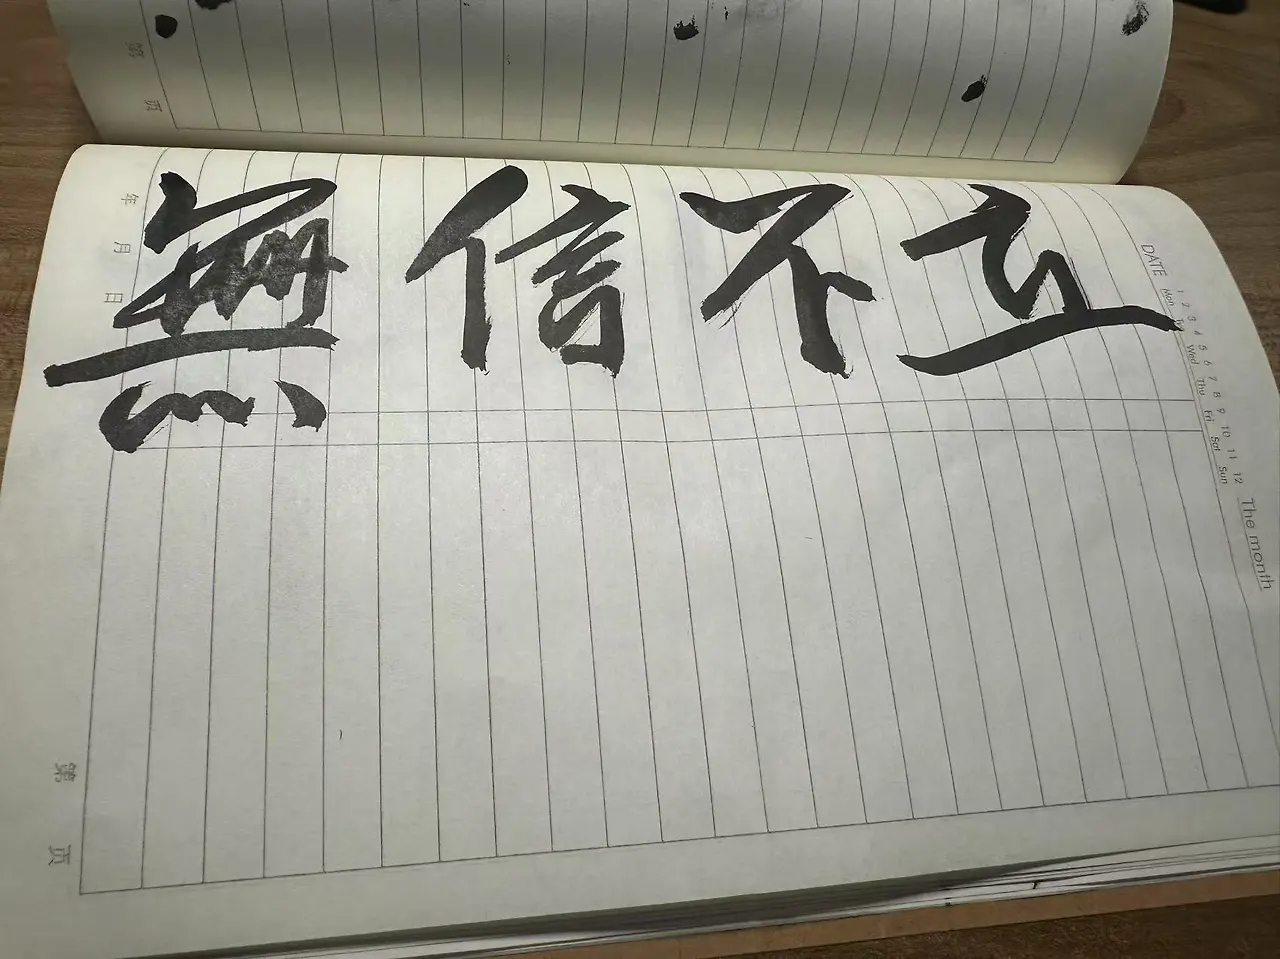 無信不立
年 月 日
第 页
第 页
DATE
1 2 3 4 5 6 7 8 9 10 11 12
Mon Tu Wed Thu Fri Sat Sun
The month